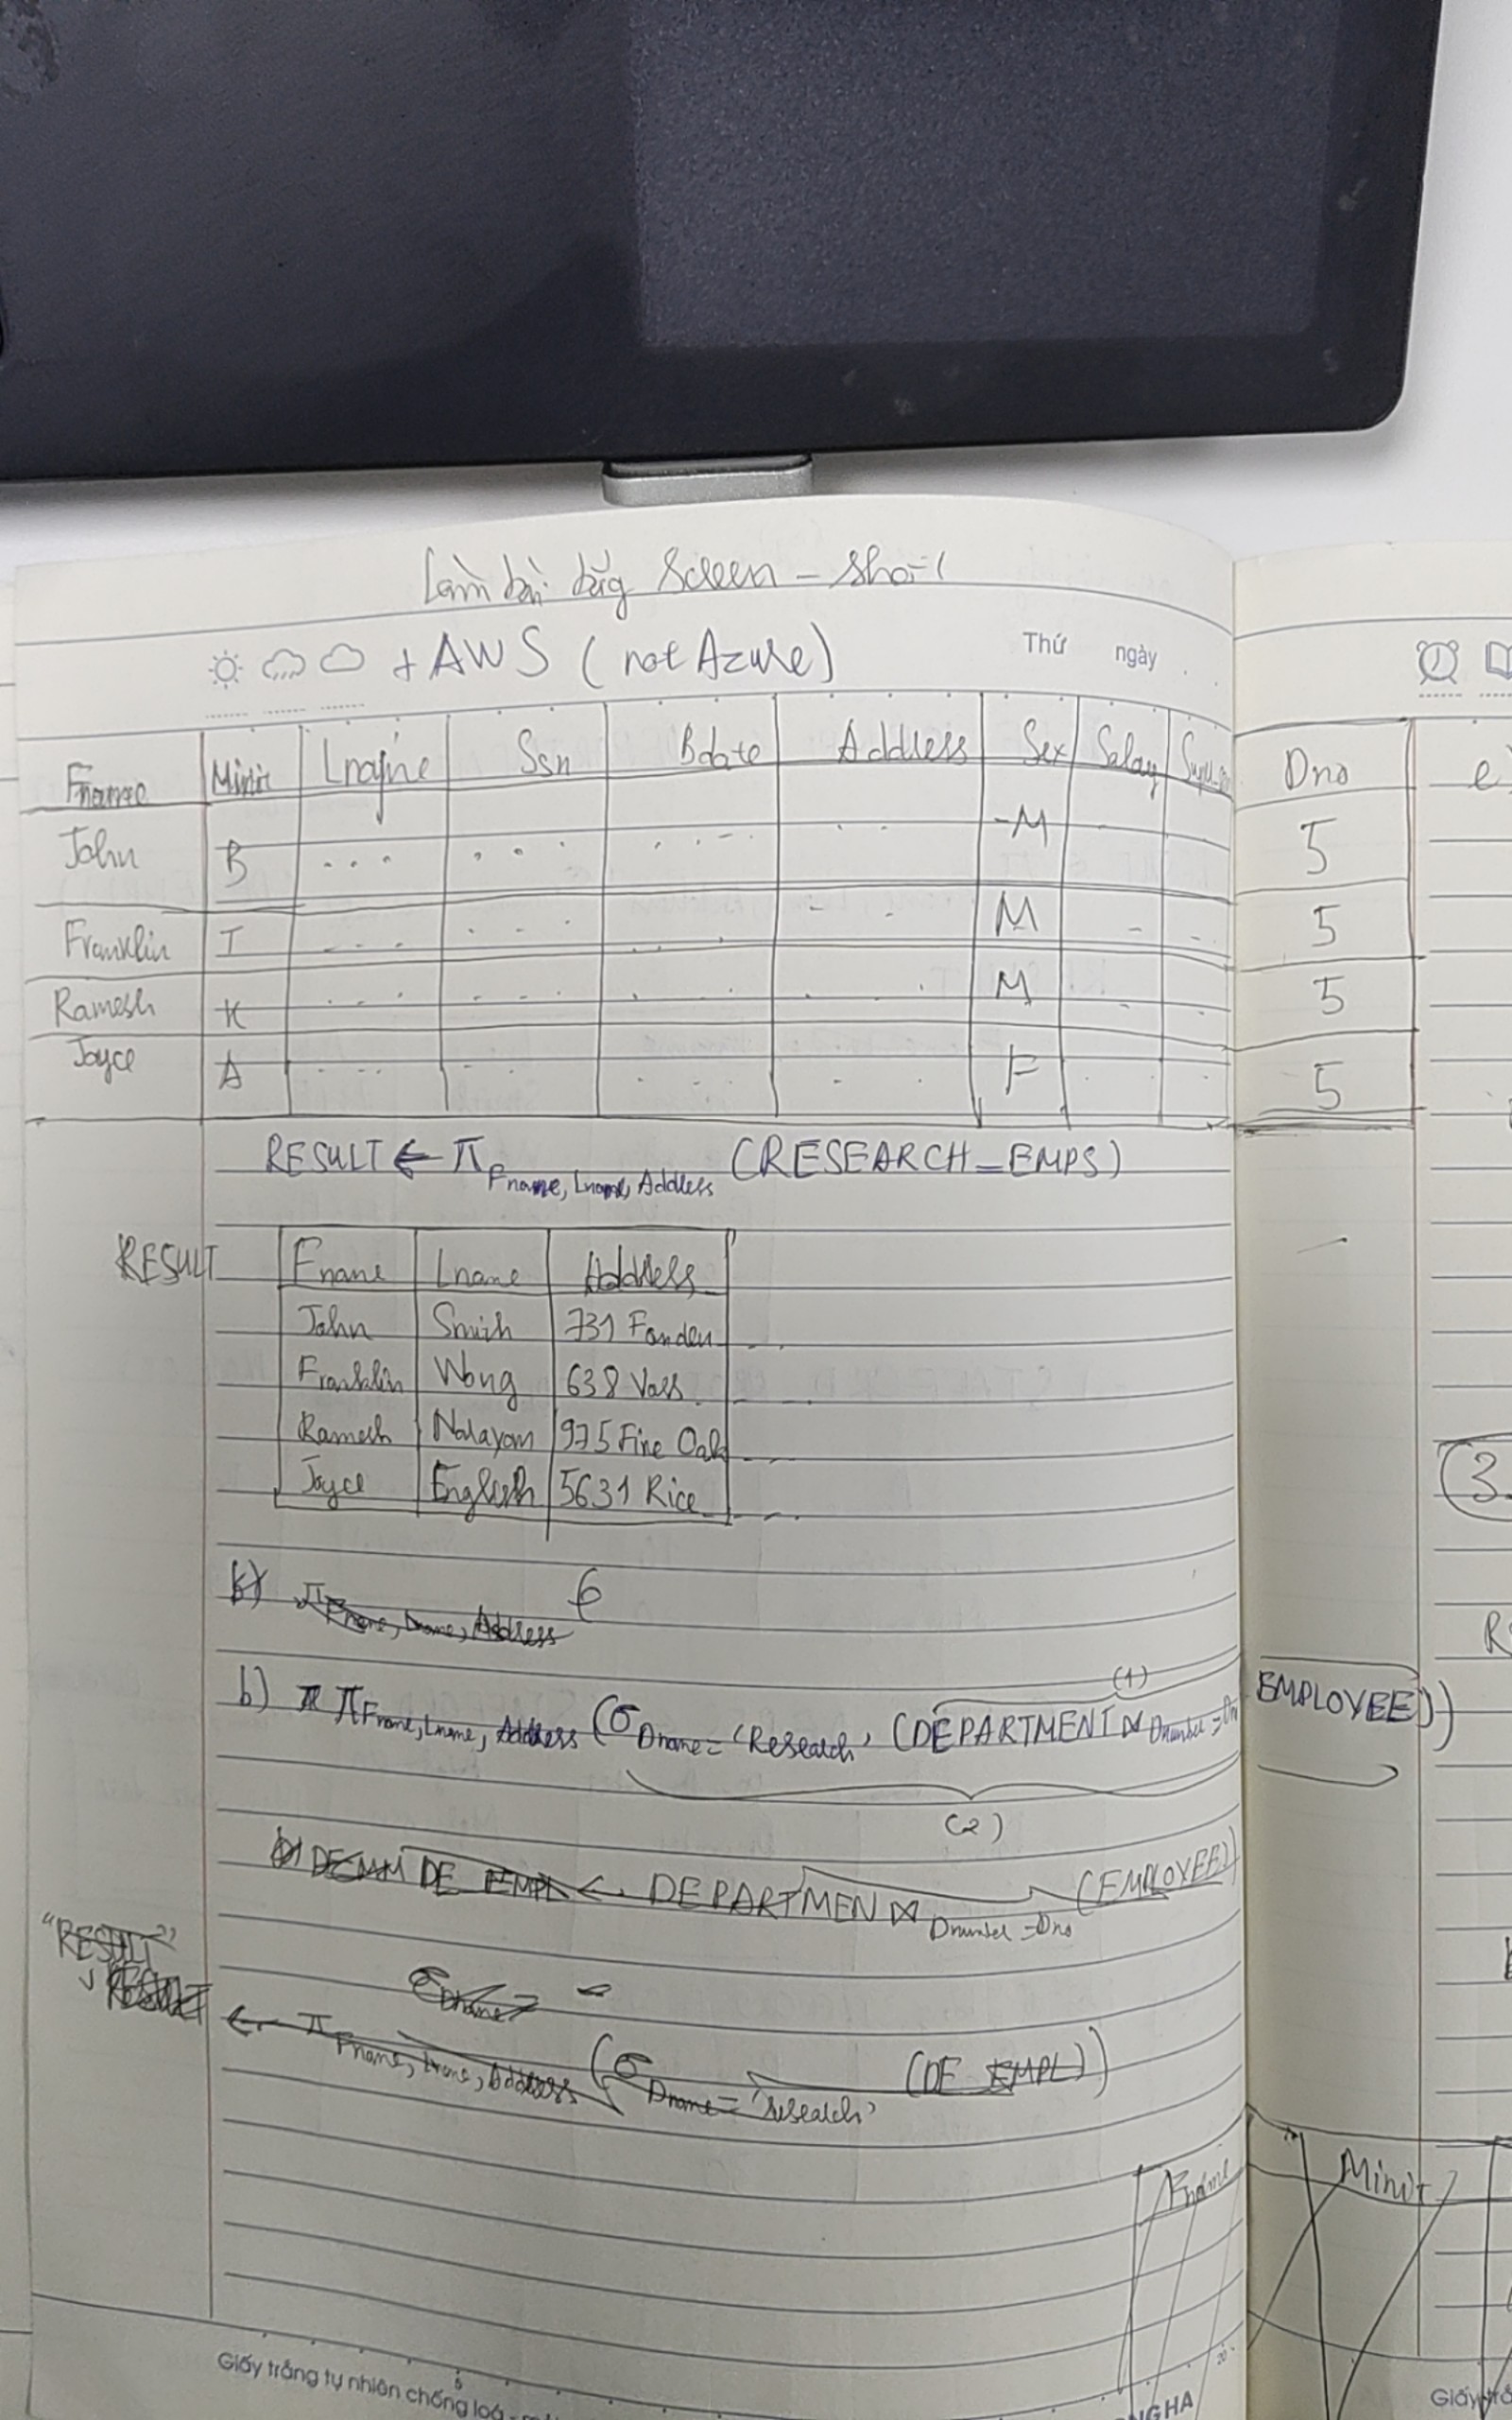 Làm bài bằg Screen - shot
+ AWS (not Azure)
Thứ ngày
Fname Minit Lname Ssn Bdate Address Sex Salary Dno
John B ... ... M 5
Franklin T ... ... M 5
Ramesh K ... ... M 5
Joyce A ... ... F 5
RESULT ← π Fname, Lname, Address (RESEARCH_EMPS)
RESULT
Fname Lname Address
John Smith 731 Fonden
Franklin Wong 638 Voss
Ramesh Narayan 975 Fire Oak
Joyce English 5631 Rice
b) π Fname, Lname, Address 6
(1)
b) π π Fname, Lname, Address (σ Dname = 'Research' (DEPARTMENT ⋈ Dnumber = Dno EMPLOYEE))
(2)
DE EMPL ← DEPARTMEN ⋈ Dnumber = Dno (EMPLOYEE))
"RESULT"
σ Dname =
RESULT ← π Fname, Lname, Address (σ Dname = 'research' (DE EMPL))
Fname Minit
3.
Giấy trắng tự nhiên chống loá
NG HA
Giấy